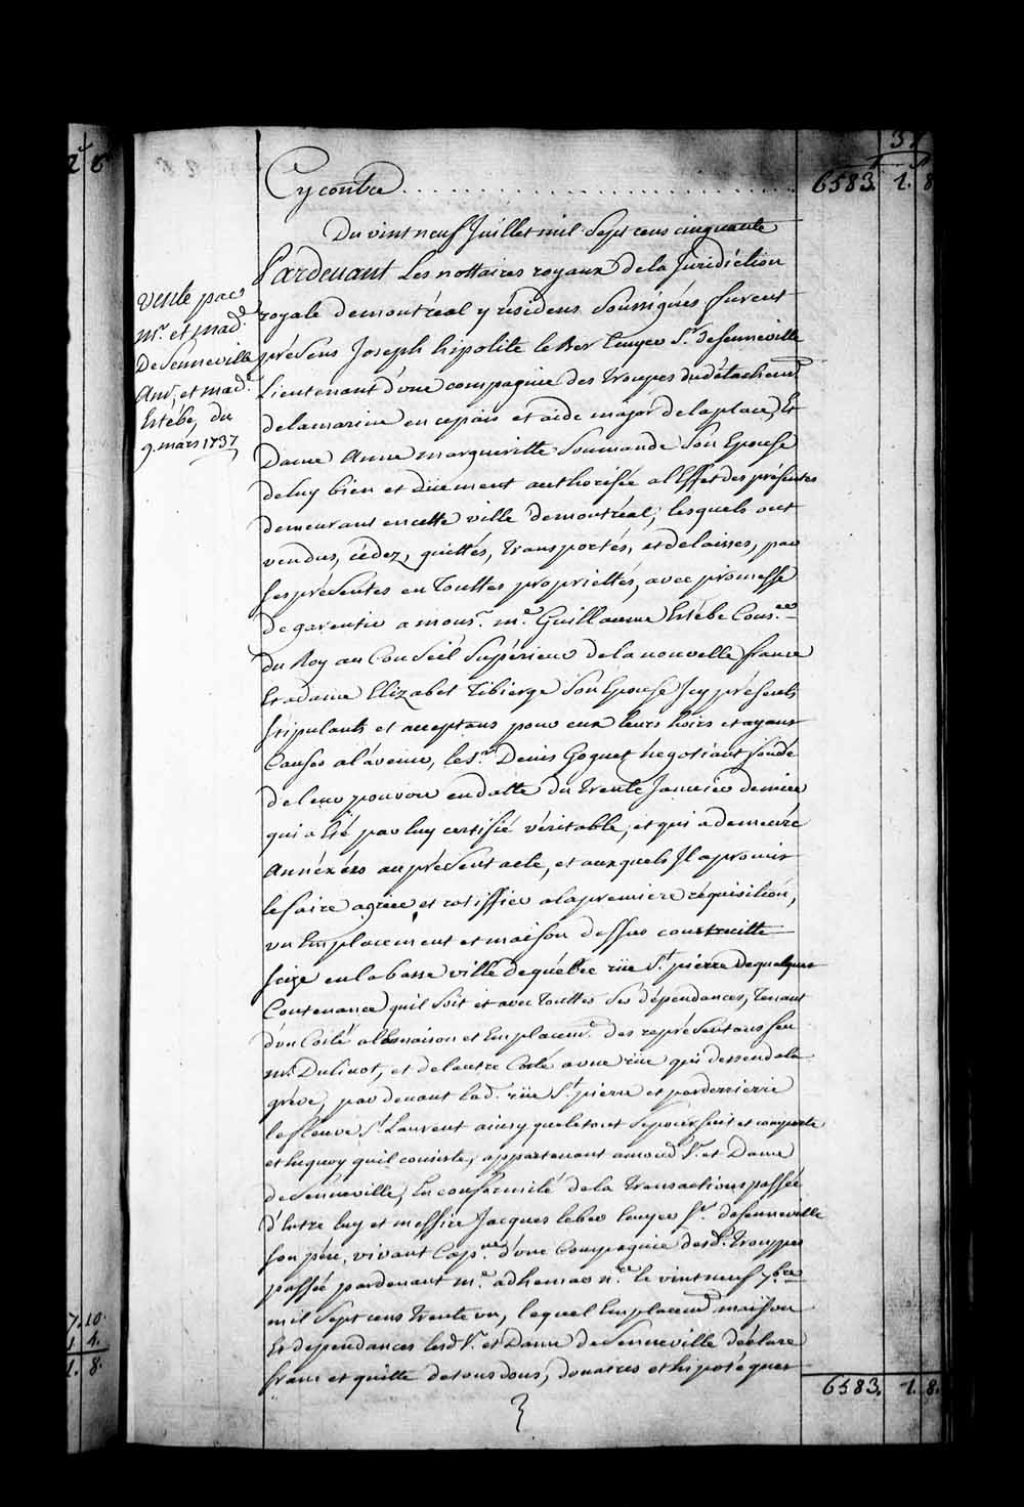 37
Cy contre . . . . . . . . . . . . . 6583. 1. 8
Du vint neuf Juillet mil Sept cens cinquante
Pardevant Les nottaires royaux de la Juridiction
royale de montréal y résidens Soussignés furent
présens Joseph hipolite le Ber Ecuyer Sr. de Senneville
Lieutenant d'une compagnie des troupes du détachemt.
de la marine en ce païs et aide major de la place, Et
Dame Anne margueritte Soumande Son Epouse
de luy bien et düement authorisée a l'Effet des présentes
demeurant en cette ville de montréal, lesquels ont
vendus, cédez, quittés, transportés, et delaissés, par
ses présentes en Touttes propriettés, avec promesse
de garentir a mons. me. Guillaume Estébe Conser.
du Roy au Conseil Supérieur de la nouvelle france
Et a dame Elizabet Tibierge Son Epouse Icy présents
stipulants et acceptans pour eux leurs hoirs et ayans
Causes a l'avenir, le Sr. Denis Goguet négotiant fondé
de leur pouvoir en datte du trente Janvier dernier
qui a Eté par luy certifié véritable, et qui a demeuré
Annéxéz au présent acte, et auxquels Il a promis
le faire agréer et ratiffier a la premiere réquisition,
un Emplacement et maison dessus construitte
size en la basse ville de québec rüe St. pierre de quelque
Contenance qu'il Soit et avec touttes Ses dépendances, tenant
d'un Coité a la maison et Emplacemt. des représentans feu
mr. Dulinot, et de l'autre Coté a une rüe qui dessend a la
gréve, par devant lad. rüe St. pierre et par derriere
le fleuve St. Laurent ainsy que le tout Se poursuit et comporte
et en quoy qu'il consiste, appartenant auxd. Sr. et Dame
de Senneville, En conformité de la transaction passée
d'Entre luy et messire Jacques leber Ecuyer Sr. de Senneville
Son pére, vivant Capne. d'une Compagnie desd. trouppes
passée pardevant me. adhemar nre. le vint neuf 7bre
mil Sept cens trente un, lequel Emplacemt. maison
Et dependances lesd. Sr. et Dame de Senneville déclare
franc et quitte de tous dons, douaires et hipotéques
6583. 1. 8.
Vente par
mr. et mad.
De Senneville
Au Sr. et mad.
Estébe, du
9. mars 1737
2 8
7. 10.
1 4.
1. 8.